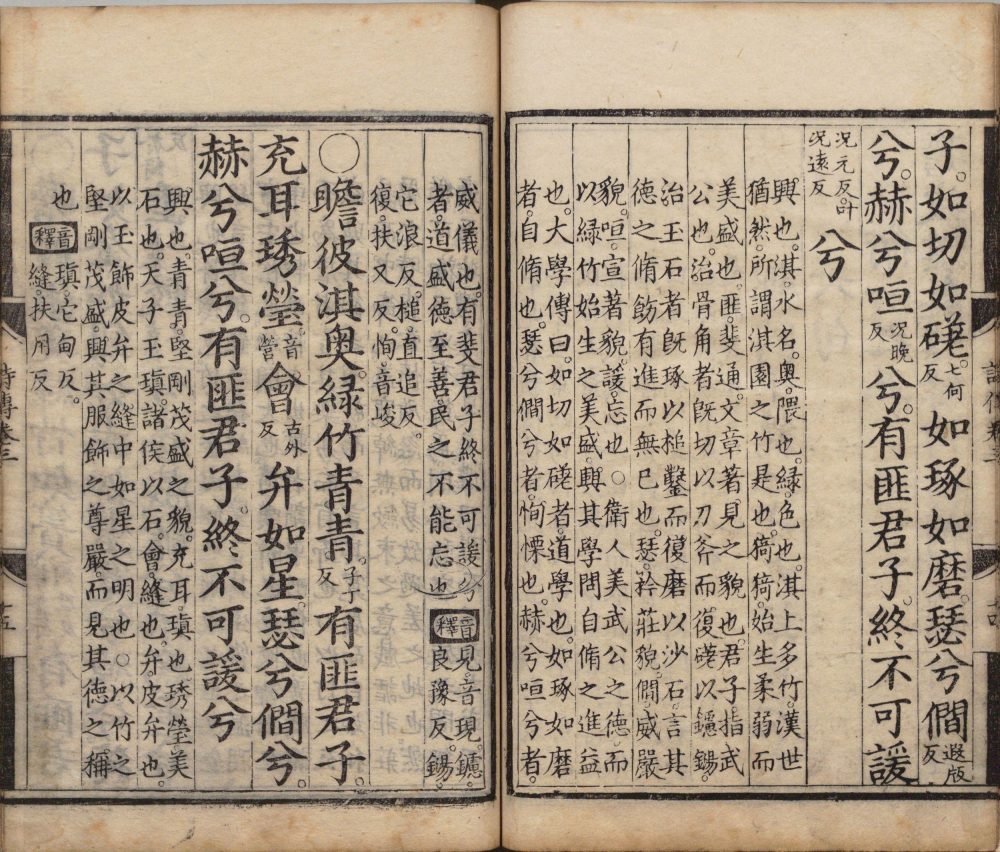 子。如切如磋。七何反如琢如磨瑟兮僩遐版反
兮。赫兮咺况晚反兮。有匪君子。終不可諼
况元反。叶况遠反兮
興也。淇。水名。奧。隈也。緑。色也。淇上多竹。漢世
猶然。所謂淇園之竹是也。猗猗。始生柔弱而
美盛也。匪。斐通。文章著見之貌也。君子。指武
公也。治骨角者。旣切以刀斧。而復磋以鑢鍚。
治玉石者。旣琢以槌鑿。而復磨以沙石。言其
德之脩飭。有進而無已也。瑟。矜莊貌。僩。威嚴
貌。咺。宣著貌。諼。忘也。○衛人美武公之德。而
以緑竹始生之美盛。興其學問自脩之進益
也。大學傳曰。如切如磋者。道學也。如琢如磨
者。自脩也。瑟兮僩兮者。恂慄也。赫兮咺兮者。
詩傳卷三
十四
威儀也。有斐君子終不可諼兮
者。道盛德至善。民之不能忘也音釋見。音現。鑢。良豫反。鍚。
它浪反。槌。直追反。
復。扶又反。恂。音峻
○瞻彼淇奧。緑竹青青。子丁反有匪君子。
充耳琇瑩。音營會古外反弁如星。瑟兮僩兮。
赫兮咺兮。有匪君子。終不可諼兮
興也。青青。堅剛茂盛之貌。充耳。瑱也。琇瑩。美
石也。天子玉瑱。諸侯以石。會。縫也。弁。皮弁也。
以玉飾皮弁之縫中。如星之明也。○以竹之
堅剛茂盛。興其服飾之尊嚴。而見其德之稱
也音釋瑱。它甸反。
縫。扶用反
詩傳卷三
十五